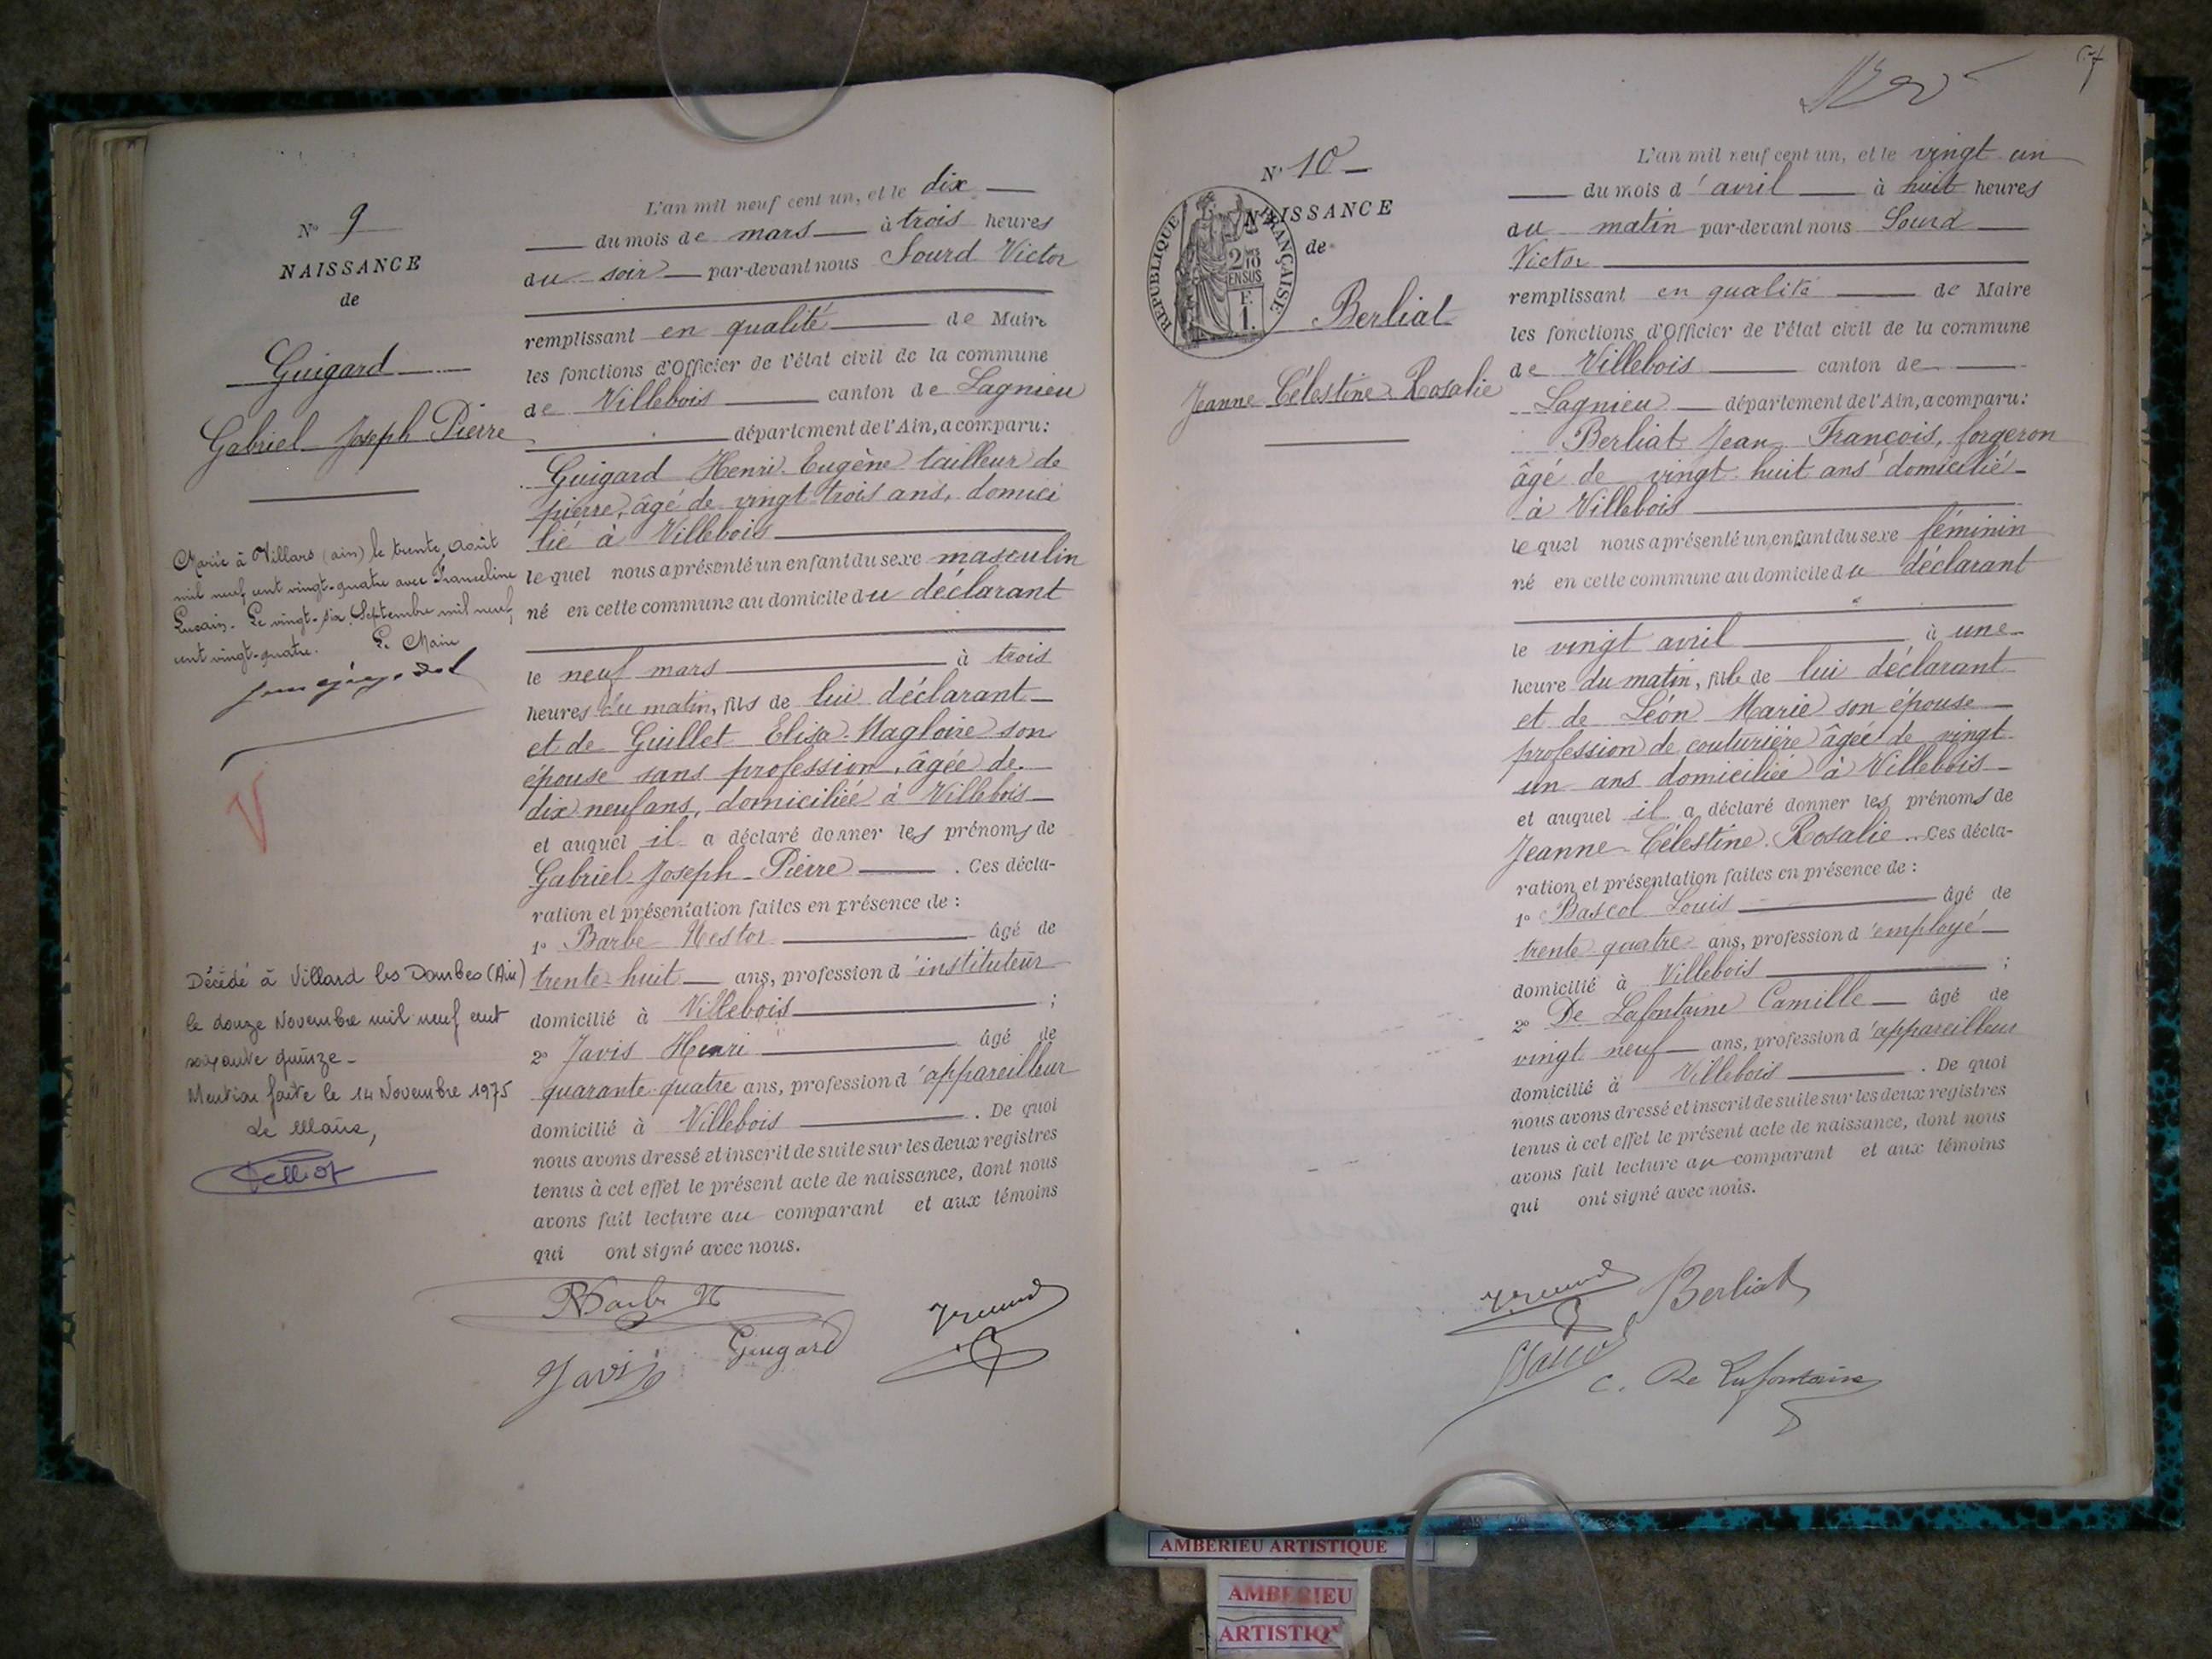 N° 9
NAISSANCE
de
Guigard
Gabriel Joseph Pierre
Marié à Villars (ain) le trente Août
mil neuf cent vingt-quatre avec Franceline
Le vingt-six Septembre mil neuf
cent vingt-quatre. Le Maire
V
Décédé à Villard les Dombes (Ain)
le douze Novembre mil neuf cent
soixante quinze -
Mention faite le 14 Novembre 1975
Le Maire,
L'an mil neuf cent un, et le dix
du mois de mars à trois heures
du soir par-devant nous Sourd Victor
remplissant en qualité de Maire
les fonctions d'Officier de l'état civil de la commune
de Villebois canton de Lagnieu
département de l'Ain, a comparu:
Guigard Henri Eugène tailleur de
pierre, âgé de vingt trois ans, domici
lié à Villebois
lequel nous a présenté un enfant du sexe masculin
né en cette commune au domicile du déclarant
le neuf mars à trois
heures du matin, fils de lui déclarant
et de Guillet Elisa Magloire son
épouse sans profession, âgée de
dix neuf ans, domiciliée à Villebois
et auquel il a déclaré donner les prénoms de
Gabriel Joseph Pierre . Ces décla-
ration et présentation faites en présence de :
1° Barbe Nestor âgé de
trente huit ans, profession d'instituteur
domicilié à Villebois ;
2° Javis Henri âgé de
quarante quatre ans, profession d'appareilleur
domicilié à Villebois . De quoi
nous avons dressé et inscrit de suite sur les deux registres
tenus à cet effet le présent acte de naissance, dont nous
avons fait lecture au comparant et aux témoins
qui ont signé avec nous.
Barbe N
Guigard
Javis
N° 10
NAISSANCE
de
REPUBLIQUE FRANÇAISE
2/10 EN SUS
F. 1.
Berliat
Jeanne Célestine Rosalie
L'an mil neuf cent un, et le vingt un
du mois d'avril à huit heures
du matin par-devant nous Sourd
Victor
remplissant en qualité de Maire
les fonctions d'Officier de l'état civil de la commune
de Villebois canton de
Lagnieu département de l'Ain, a comparu:
Berliat Jean François, forgeron
âgé de vingt huit ans domicilié
à Villebois
lequel nous a présenté un enfant du sexe féminin
né en cette commune au domicile du déclarant
le vingt avril à une
heure du matin, fille de lui déclarant
et de Léon Marie son épouse
profession de couturière âgée de vingt
un ans domiciliée à Villebois
et auquel il a déclaré donner les prénoms de
Jeanne Célestine Rosalie . Ces décla-
ration et présentation faites en présence de :
1° Bascol Louis âgé de
trente quatre ans, profession d'employé
domicilié à Villebois ;
2° De Lafontaine Camille âgé de
vingt neuf ans, profession d'appareilleur
domicilié à Villebois . De quoi
nous avons dressé et inscrit de suite sur les deux registres
tenus à cet effet le présent acte de naissance, dont nous
avons fait lecture au comparant et aux témoins
qui ont signé avec nous.
Berliat
C. De Lafontaine
AMBERIEU ARTISTIQUE
AMBERIEU
ARTISTIQ